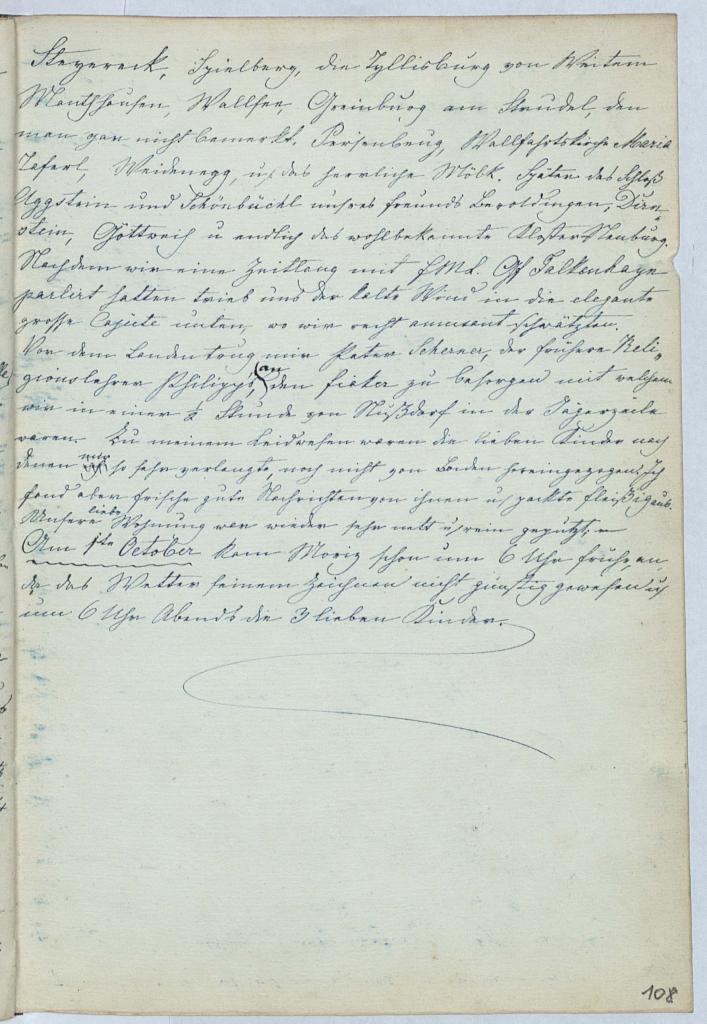 Steyereck, Spielberg, die Tyllisburg von Weitem
Mauthhausen, Wallsee, Greinburg am Strudel, den
man gar nicht bemerkt. Persenbeug, Wallfahrtskirche Maria
Taferl, Weidenegg, u das herrliche Mölk. Später das Schloß
Aggstein und Schönbüchl unsres Freunds Beroldingen, Dürn„
stein, Göttweih u endlich das wohlbekannte Kloster Neuburg.
Nachdem wir eine Zeitlang mit FML. Gf Falkenhayn
parlirt hatten trieb uns der kalte Wind in die elegante
grosse Cajüte unten, wo wir recht amusant schwätzten.
Vor dem Landen trug mir Pater Scherner, der frühere Reli„
gionslehrer Philipps, an den Fiaker zu besorgen mit welchem
wir in einer ½ Stunde von Nußdorf in der Jägerzeile
waren. Zu meinem Leidwesen waren die lieben Kinder nach
denen mir so sehr verlangte, noch nicht von Baden hereingezogen. Ich
fand aber frische gute Nachrichten von ihnen u packte fleißig aus.
Unsere liebe Wohnung war wieder sehr nett u rein geputzt. –
Am 1ten October kam Moriz schon um 6 Uhr früh an,
da das Wetter seinem Zeichnen nicht günstig gewesen u
um 6 Uhr Abends die 3 lieben Kinder.
108